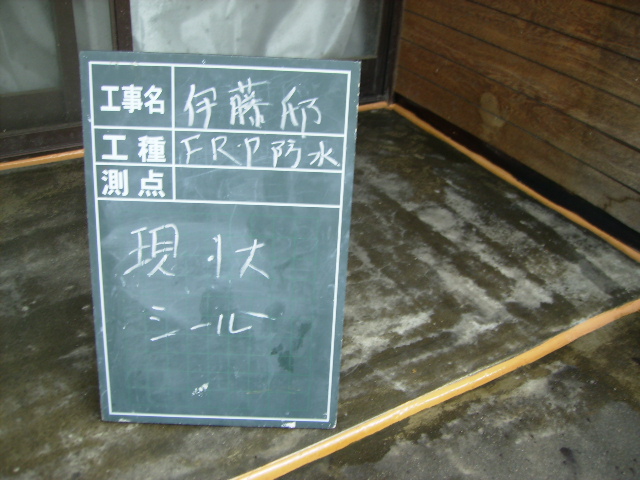 工事名 伊藤邸
工種 FRP防水
測点
現状
シール